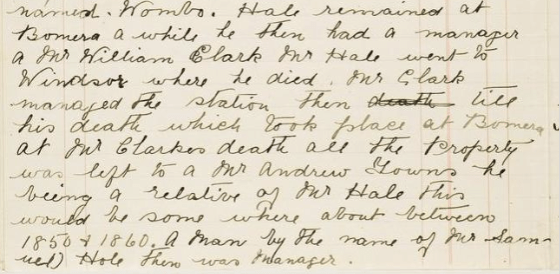 named. Wombo. Hale remained at
Bomera a while he then had a manager
a Mr William Clark Mr Hale went to
Windsor where he died. Mr Clark
managed the station then death till
his death which took place at Bomera.
at Mr Clarkes death all the Property
was left to a Mr Andrew Towns he
being a relative of Mr Hale this
would be some where about between
1850 & 1860. A man by the name of Mr Sam-
uel) Hole then was manager.